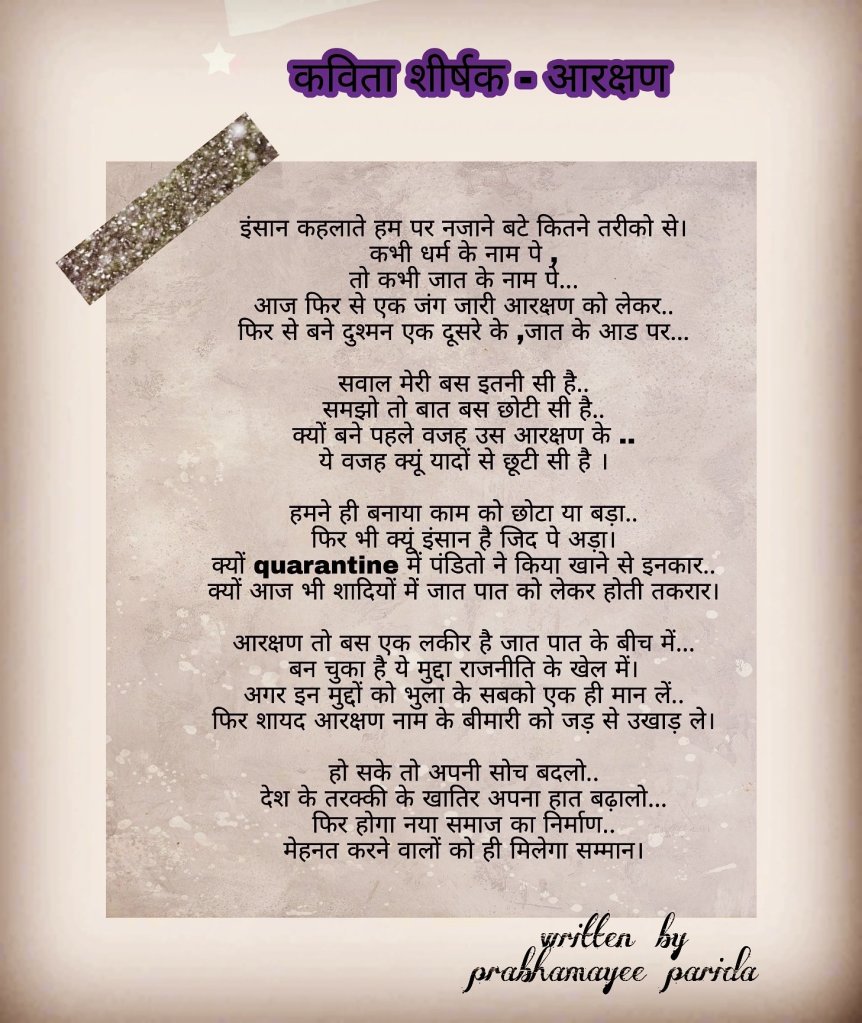 कविता शीर्षक - आरक्षण
इंसान कहलाते हम पर नजाने बटे कितने तरीको से।
कभी धर्म के नाम पे ,
तो कभी जात के नाम पे...
आज फिर से एक जंग जारी आरक्षण को लेकर..
फिर से बने दुश्मन एक दूसरे के ,जात के आड पर...
सवाल मेरी बस इतनी सी है..
समझो तो बात बस छोटी सी है..
क्यों बने पहले वजह उस आरक्षण के ..
ये वजह क्यूं यादों से छूटी सी है ।
हमने ही बनाया काम को छोटा या बड़ा..
फिर भी क्यूं इंसान है जिद पे अड़ा।
क्यों quarantine में पंडितो ने किया खाने से इनकार..
क्यों आज भी शादियों में जात पात को लेकर होती तकरार।
आरक्षण तो बस एक लकीर है जात पात के बीच में...
बन चुका है ये मुद्दा राजनीति के खेल में।
अगर इन मुद्दों को भुला के सबको एक ही मान लें..
फिर शायद आरक्षण नाम के बीमारी को जड़ से उखाड़ ले।
हो सके तो अपनी सोच बदलो..
देश के तरक्की के खातिर अपना हात बढ़ालो...
फिर होगा नया समाज का निर्माण..
मेहनत करने वालों को ही मिलेगा सम्मान।
written by
prabhamayee parida